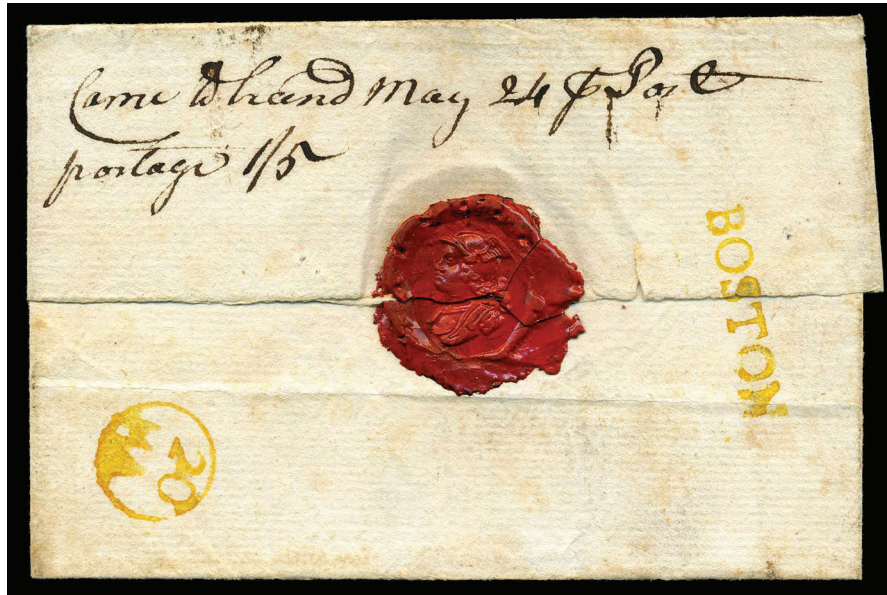 Came to hand May 24 ⅌ Post
postage 1/5
BOSTON
20